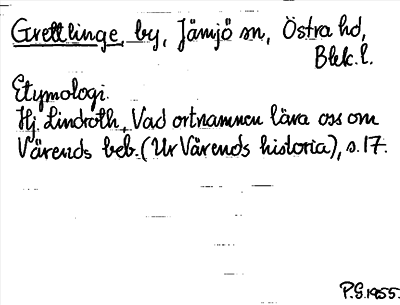 Grettlinge, by, Jämjö sn, Östra hd,
Blek. l.
Etymologi.
Hj. Lindroth, Vad ortnamnen lära oss om
Värends beb. (Ur Värends historia), s. 17.
P.G. 1955.